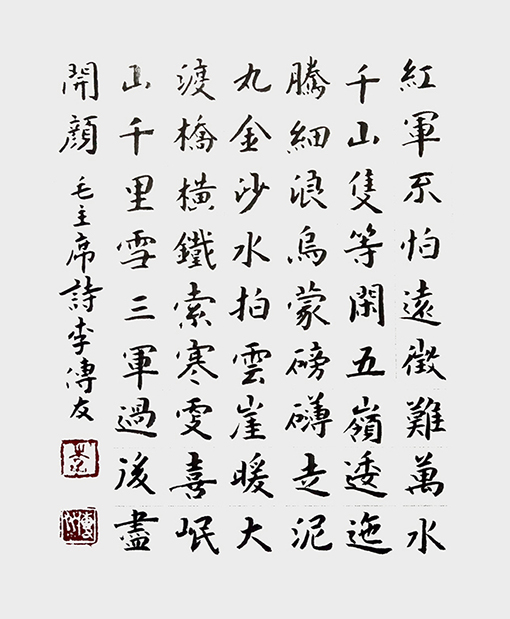 紅軍不怕遠徵難萬水
千山隻等閑五嶺逶迤
騰細浪烏蒙磅礴走泥
丸金沙水拍雲崖暖大
渡橋橫鐵索寒雯喜岷
山千里雪三軍過後盡
開顏
毛主席詩李傳友